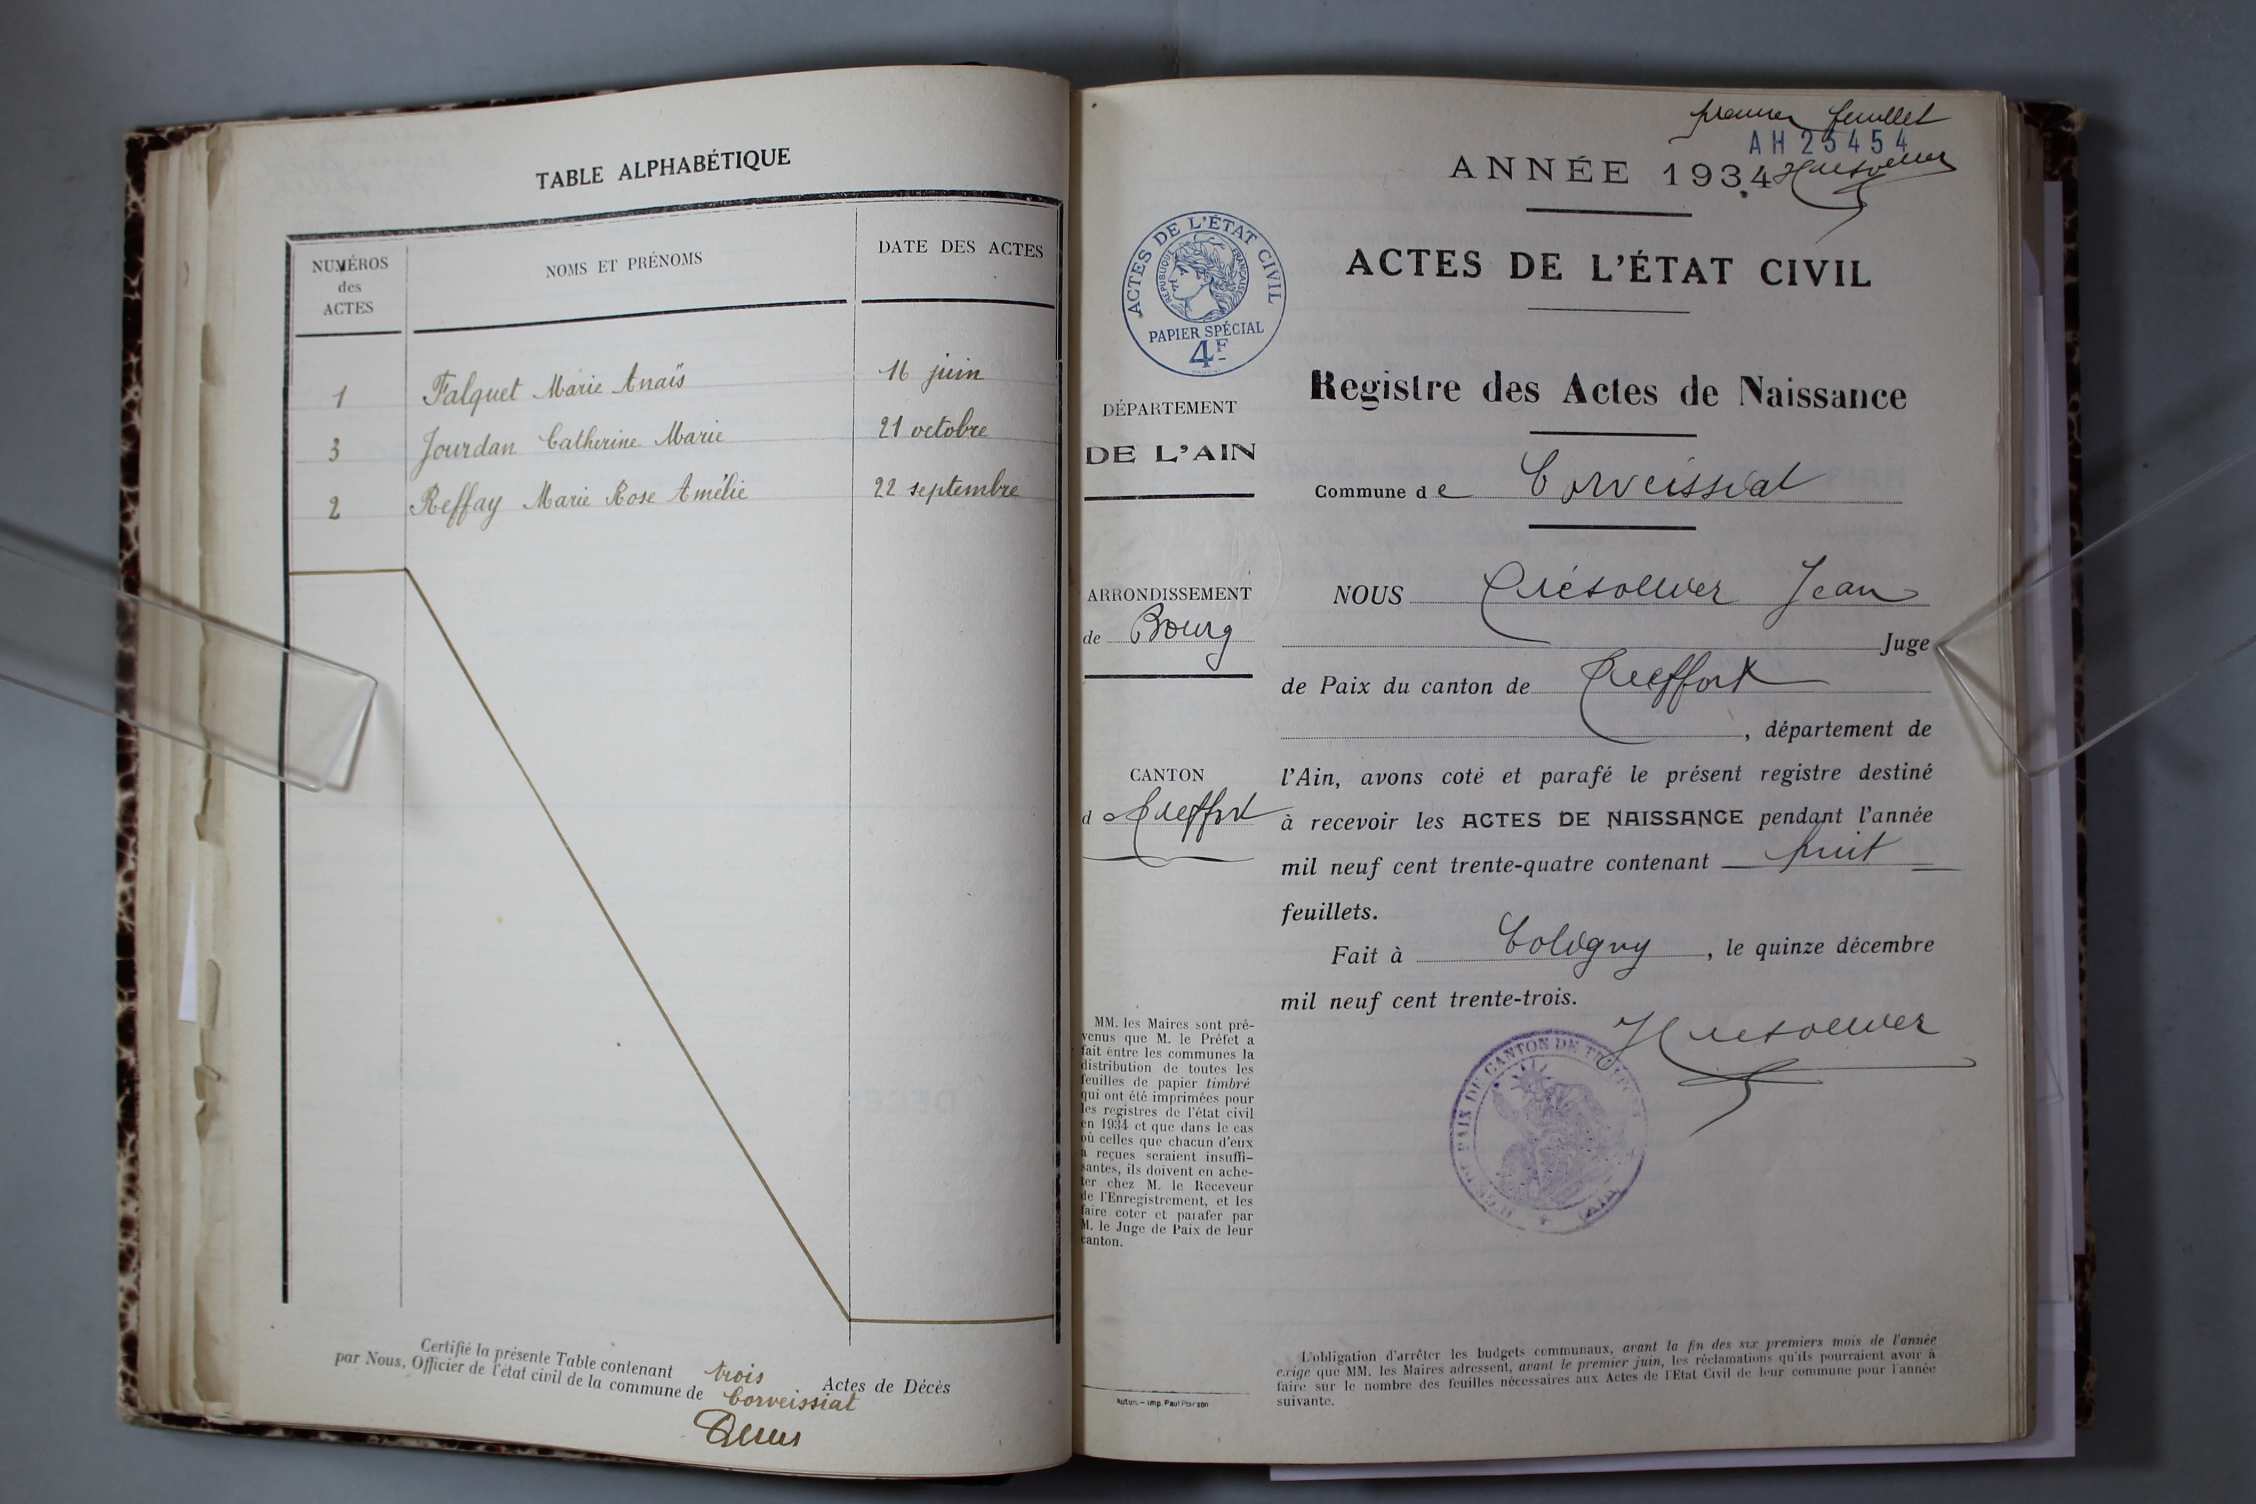 TABLE ALPHABÉTIQUE
NUMÉROS
des
ACTES
NOMS ET PRÉNOMS
DATE DES ACTES
1 Falquet Marie Anaïs 16 juin
3 Jourdan Catherine Marie 21 octobre
2 Reffay Marie Rose Amélie 22 septembre
Certifié la présente Table contenant trois Actes de Décès
par Nous, Officier de l'état civil de la commune de Corveissiat
premier feuillet
AH 25454
ANNÉE 1934
ACTES DE L'ÉTAT CIVIL
RÉPUBLIQUE FRANÇAISE
PAPIER SPÉCIAL
4F
ACTES DE L'ÉTAT CIVIL
Registre des Actes de Naissance
Commune de Corveissiat
DÉPARTEMENT
DE L'AIN
ARRONDISSEMENT
de Bourg
CANTON
d e Treffort
MM. les Maires sont pré-
venus que M. le Préfet a
fait entre les communes la
distribution de toutes les
feuilles de papier timbré
qui ont été imprimées pour
les registres de l'état civil
en 1934 et que dans le cas
où celles que chacun d'eux
a reçues seraient insuffi-
santes, ils doivent en ache-
ter chez M. le Receveur
de l'Enregistrement, et les
faire coter et parafer par
M. le Juge de Paix de leur
canton.
Autun. – Imp. Paul
NOUS Jean
Juge
de Paix du canton de Treffort
, département de
l'Ain, avons coté et parafé le présent registre destiné
à recevoir les ACTES DE NAISSANCE pendant l'année
mil neuf cent trente-quatre contenant huit
feuillets.
Fait à Coligny, le quinze décembre
mil neuf cent trente-trois.
PAIX DE CANTON DE
L'obligation d'arrêter les budgets communaux, avant la fin des six premiers mois de l'année
exige que MM. les Maires adressent, avant le premier juin, les réclamations qu'ils pourraient avoir à
faire sur le nombre des feuilles nécessaires aux Actes de l'Etat Civil de leur commune pour l'année
suivante.